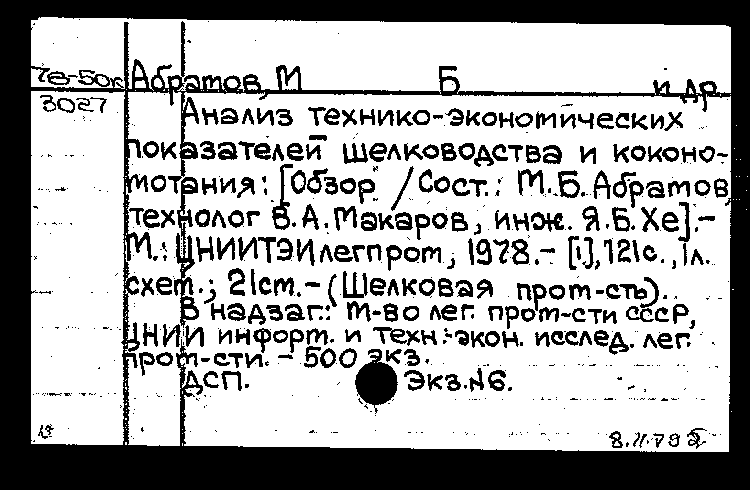 78-50к Абратов, М Б и др
3027
Анализ технико-экономических
показателей шелководства и коконо-
мотания: [Обзор / Сост.: М.Б. Абратов,
технолог В.А. Макаров, инж. Я.Б. Хе].-
М.: ЦНИИТЭИлегпром, 1978.- [1], 121с., 1л.
схем.; 21см.- (Шелковая пром-сть).
В надзаг.: М-во лег. пром-сти СССР,
ЦНИИ информ. и техн.-экон. исслед. лег.
пром-сти. - 500 экз.
ДСП. Экз.№6.